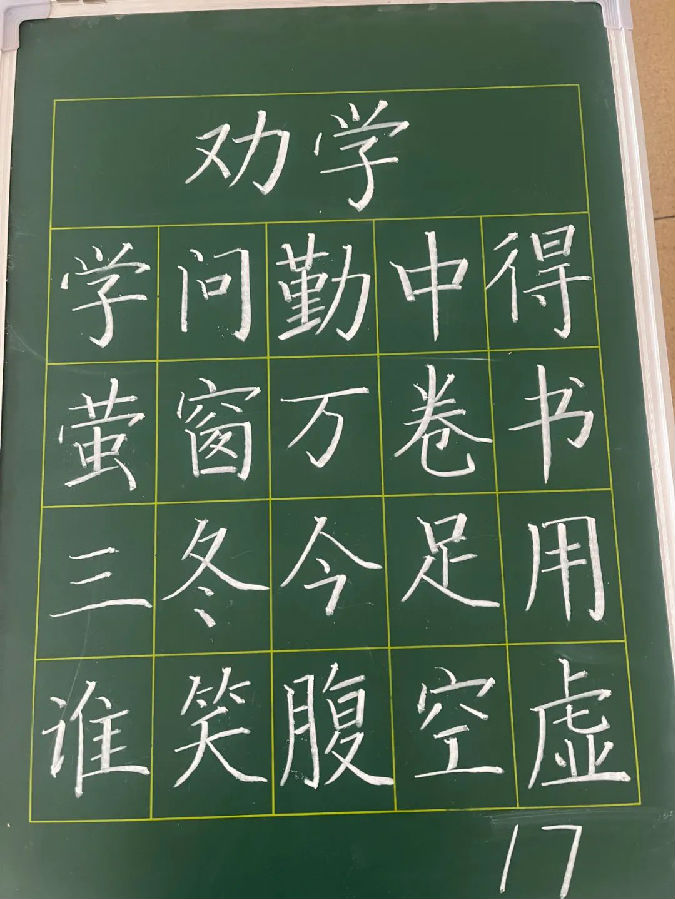 劝学
学问勤中得
萤窗万卷书
三冬今足用
谁笑腹空虚
17